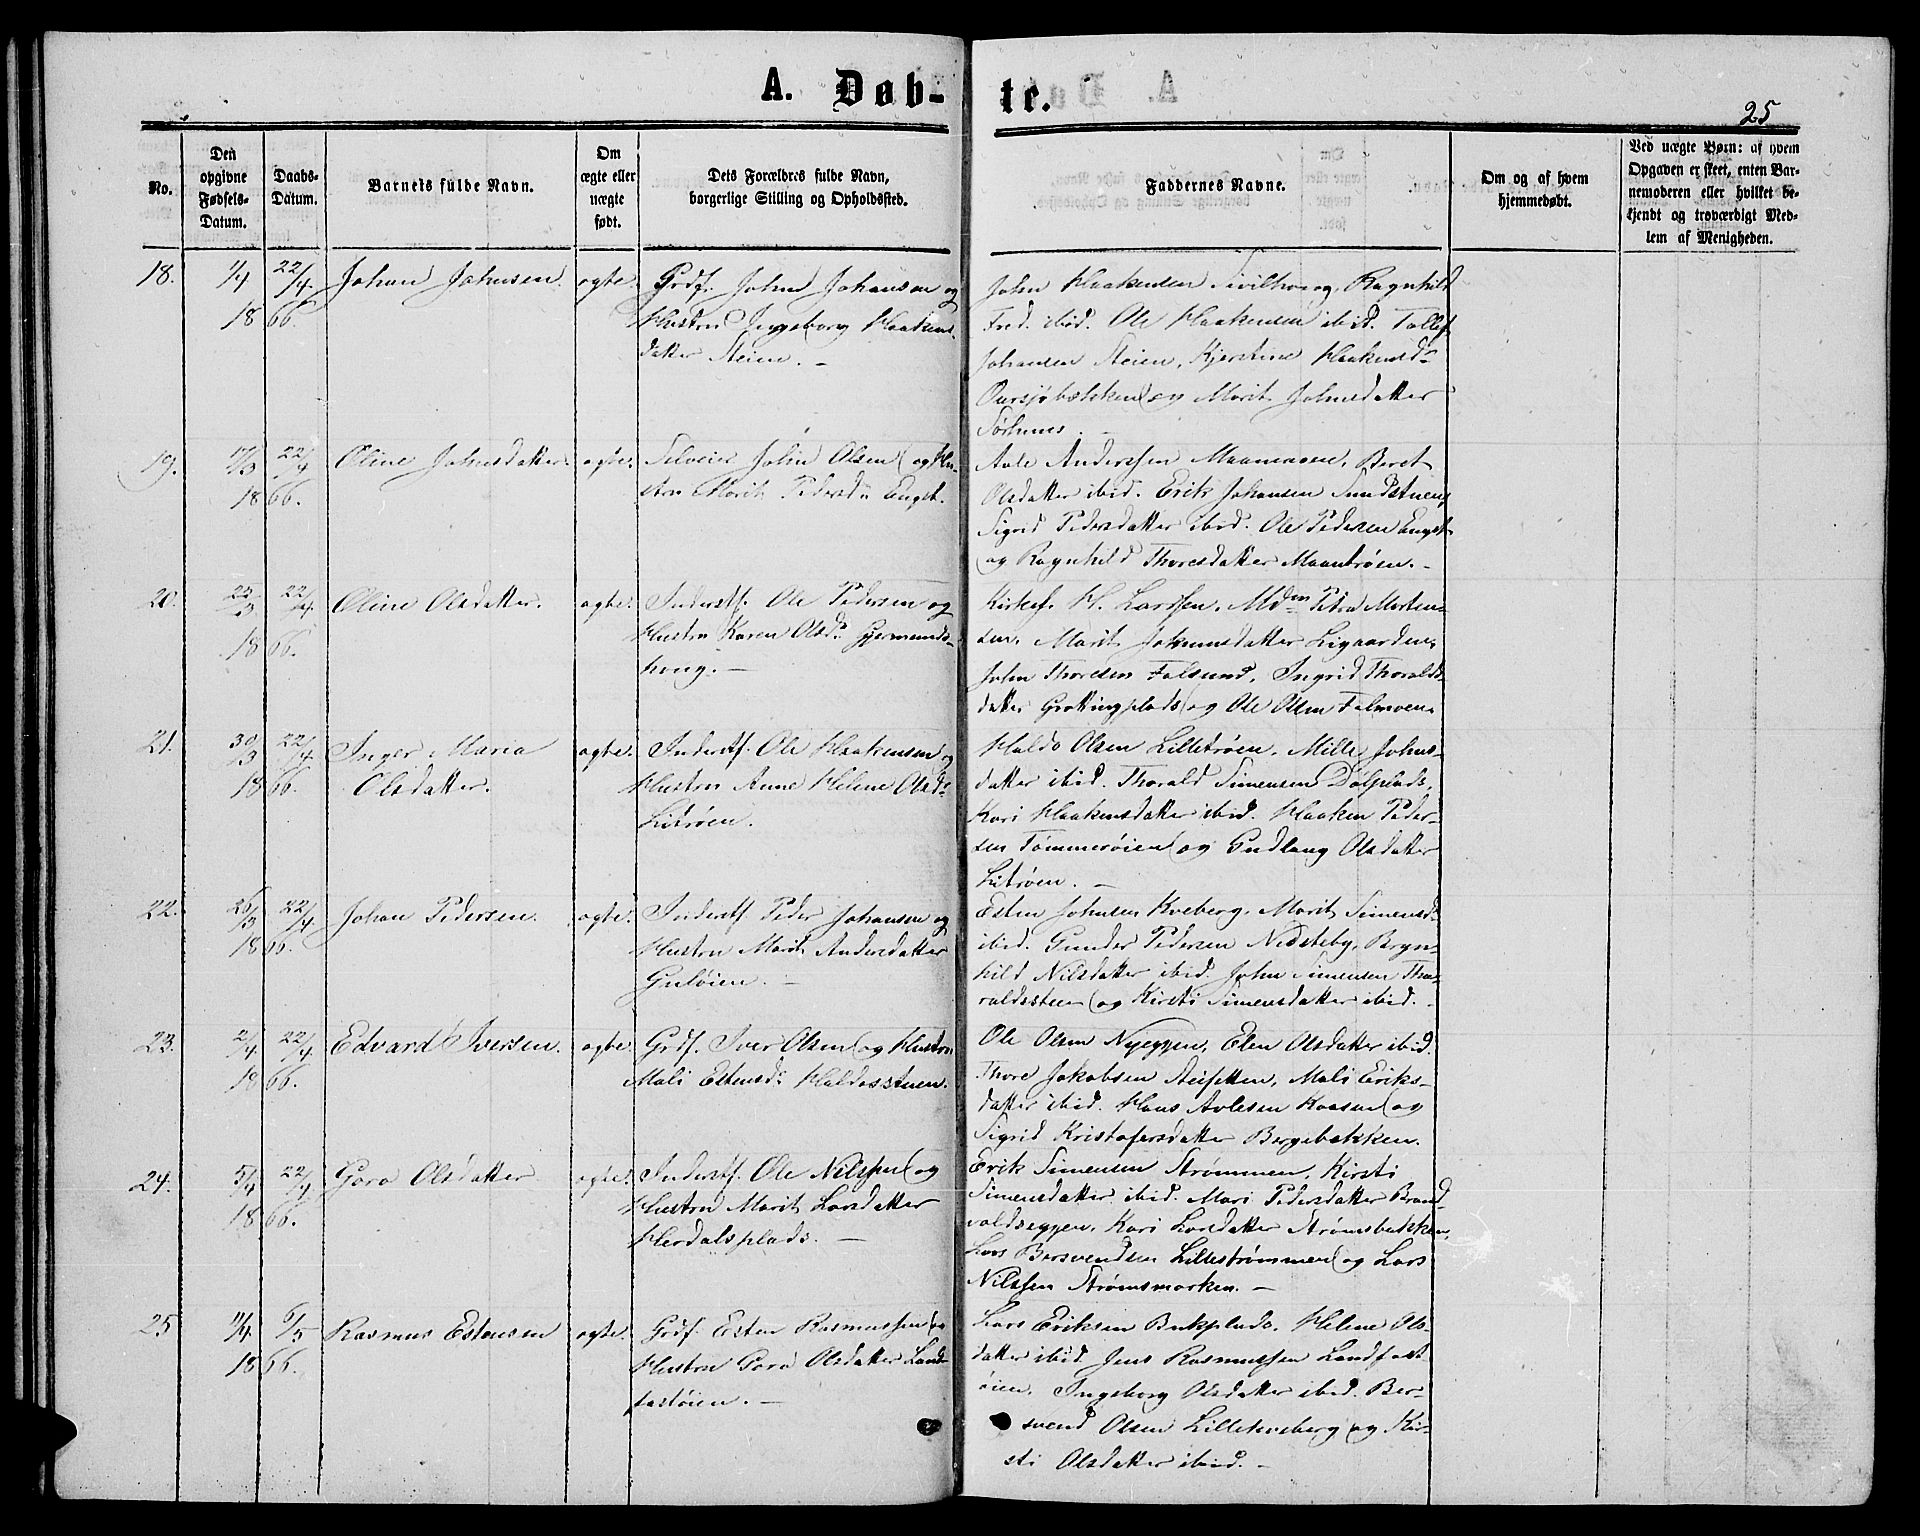 A. Døb-
te.
25
No.
Den
opgivne
Fødsels-
Datum.
Daabs-
Datum.
Barnets fulde Navn.
Om
ægte eller
uægte
født.
Dets Forældres fulde Navn,
borgerlige Stilling og Opholdssted.
Faddernes Navne.
Om og af hvem
hjemmedøbt.
Ved uægte Børn: af hvem
Opgaven er skeet, enten Bar-
nemoderen eller hvilket be-
kjendt og troværdigt Med-
lem af Menigheden.
18. 1/4 22/4 Johan Johnsen. ægte. Grdf. John Johansen og
1866. Hustru Ingeborg Haakens-
datter Steien. -
John Haakensen Ragnhild
Fred. ibid. Ole Haakensen ibid. Tollef
Johansen Steien, Kjerstine Haakensd.
Oursjøbækken og Marit Johnsdatter
Sørhuus. -
19. 17/3 22/4 Oline Johnsdatter. ægte. Selveier John Olsen og Hu-
1866. stru Marit Pedersd. Enget.
Avle Anderssen Maanmoen, Beret
Olsdatter ibid. Erik Johansen Sundstuen,
Sigrid Pedersdatter ibid. Ole Pedersen Enget
og Ragnhild Thoresdatter Maantrøen. -
20. 23/3 22/4 Oline Olsdatter. ægte. Inderstf. Ole Pedersen og
1866. Hustru Karen Olsd. Gjermunds-
houg. -
Kirkes. H. Larssen, Mdm Petra Morten-
sen, Marit Johannesdatter Ligaarden,
John Thoresen Falsund, Ingrid Thoralds-
datter Grøttingplads og Ole Olsen Telmoen.
21. 30/3 22/4 Inger Maria ægte. Inderstf. Ole Haakensen og
1866. Olsdatter. Hustru Anne Helene Olsd.
Litrøen.
Haldo Olsen Lilletrøen, Mille Johns-
datter ibid. Thorald Simensen Dølplads,
Kari Haakensdatter ibid. Haaken Peder-
sen Tømmerøien og Gudlaug Olsdatter
Litrøen. -
22. 26/3 22/4 Johan Pedersen. ægte. Inderstf. Peder Johansen og
1866. Hustru Marit Andersdatter
Guløien. -
Esten Johnsen Kveberg, Marit Simensd.
ibid. Gunder Pedersen Nedsteby, Bryn-
hild Nilsdatter ibid. John Simensen Tho-
raldsstuen og Kirsti Simensdatter ibid. -
23. 2/4 22/4 Edvard Iversen. ægte. Grdf. Iver Olsen og Hustru
1866. Mali Estensd. Haldosstuen.
Ole Olsen Nyeggen, Elen Olsdatter ibid.
Thore Jakobsen Mali Eriks-
datter ibid. Hans Avlesen Kaasen og
Sigrid Kristofersdatter Bergebækken.
24. 5/4 22/4 Goro Olsdatter ægte. Inderstf. Ole Nilssen og
1866. Hustru Marit Larsdatter
Herdalsplads. -
Erik Simensen Strømmen, Kirsti
Simensdatter ibid. Mari Pedersdatter Brand-
voldseggen, Kari Larsdatter Strømsbækken,
Lars Bersvendsen Lillestrømmen og Lars
Nilssen Strømsmarken. -
25 11/4 6/5 Rasmus Estensen ægte. Grdf. Esten Rasmussen og
1866. Hustru Goro Olsdatter Land-
fastøien. -
Lars Eriksen Bakplads, Helene Ols-
datter ibid. Jens Rasmussen Landfast-
øien, Ingeborg Olsdatter ibid. Ber-
svend Olsen Lillekveberg og Kir-
sti Olsdatter ibid. -